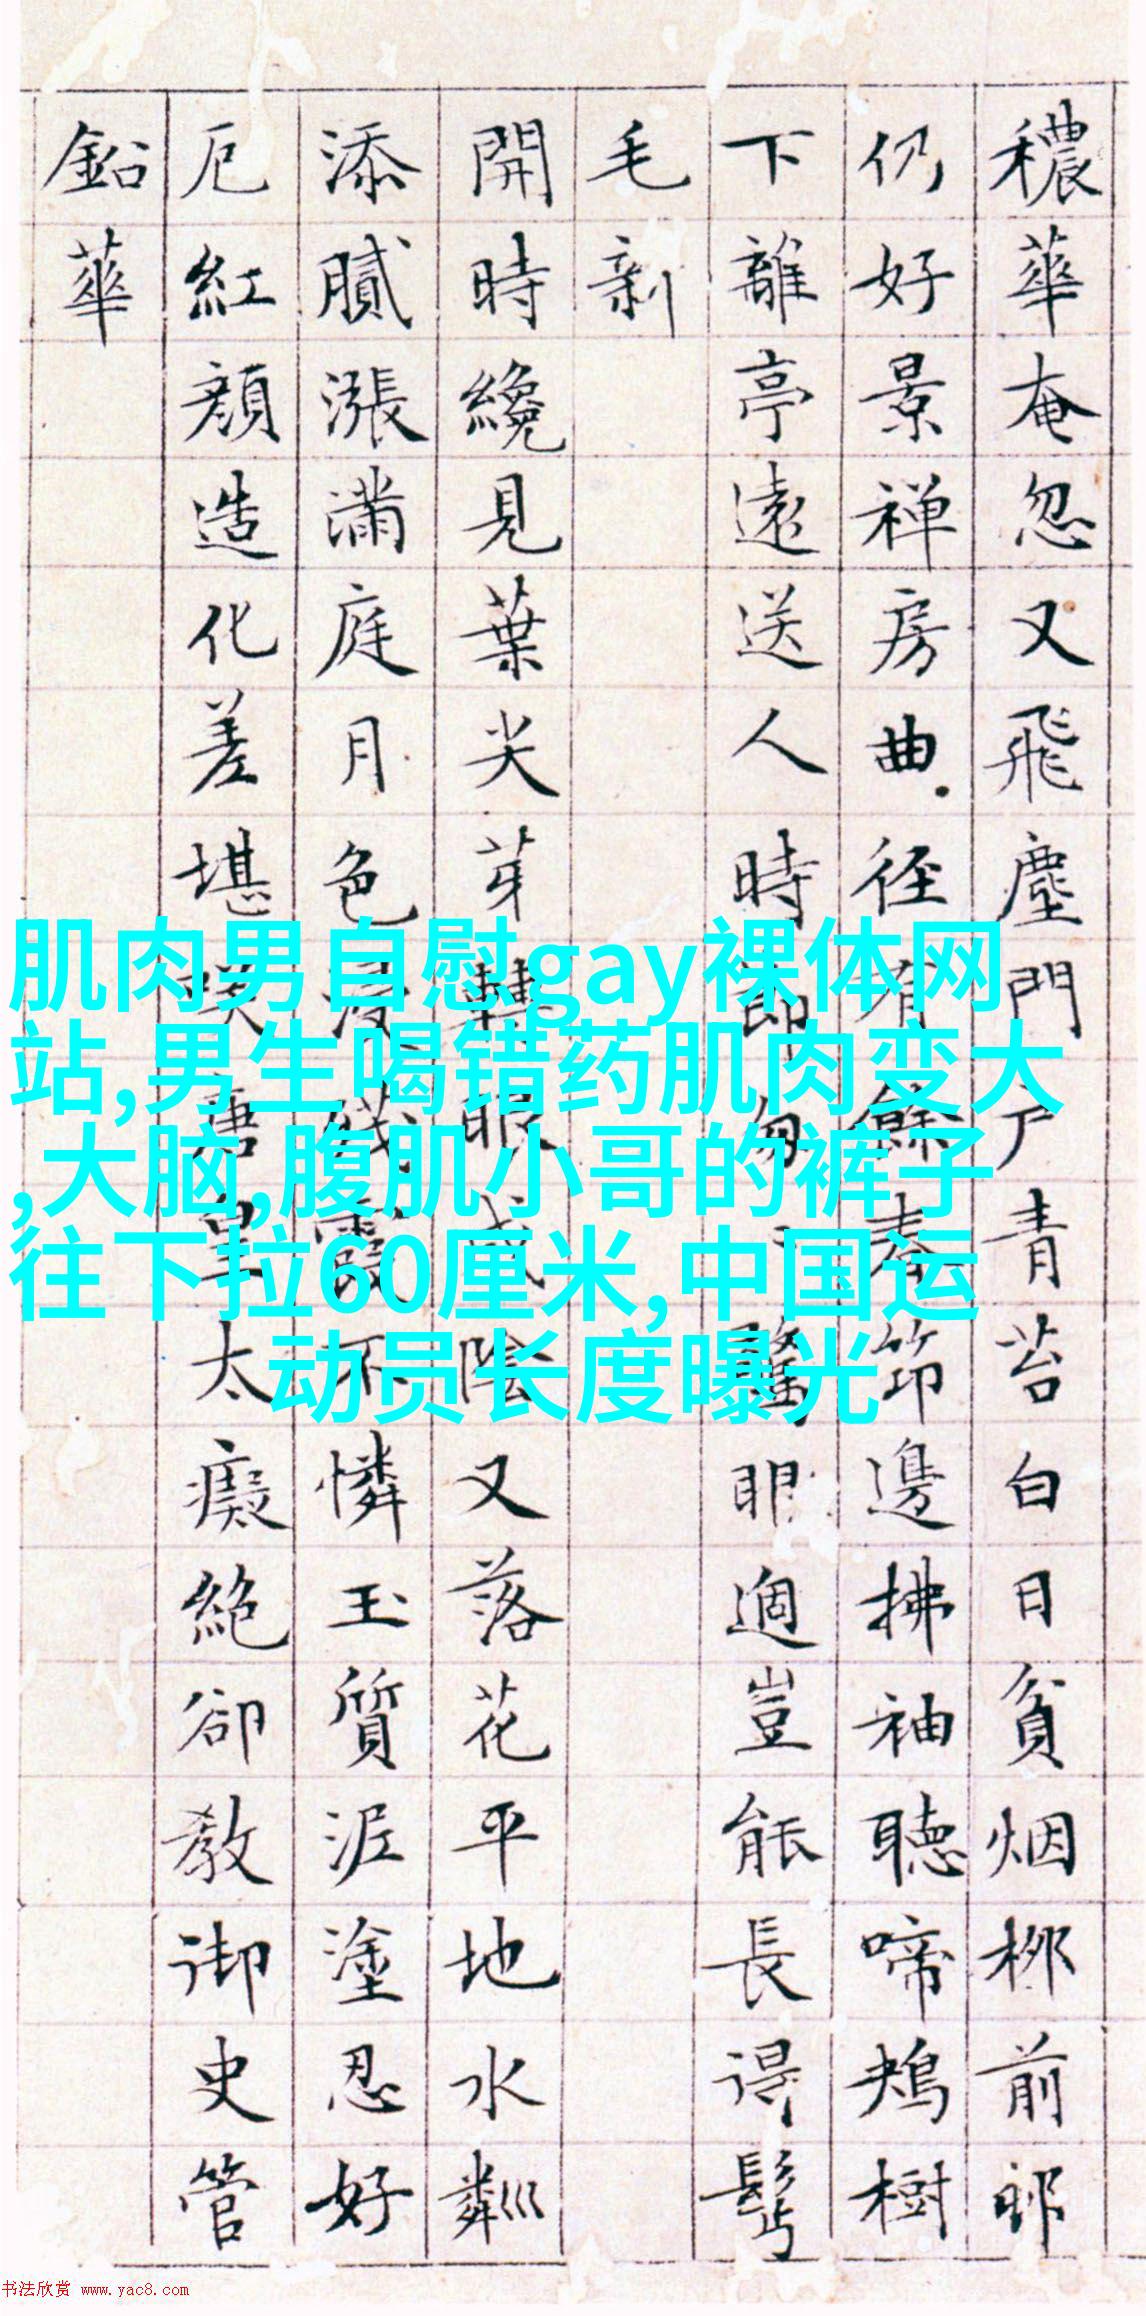 穠華奄忽又飛塵門尸青苔白日貧烟柳前郎
仍好景禅房曲径有餘春笻邊拂袖聽啼鴂樹
下離亭遠送人時節匆〻驚眼過豈能長得髩
毛新
開時纔見葉尖芽轉眼成陰又落花平地水粼巛
添膩漲滿庭月色浸殘霞不憐玉質泥塗忍好
厄紅顔造化差堪唐皇太癡絕卻教御史管
鉛華
肌肉男自慰gay裸体网
站,男生喝错药肌肉变大
,大脑,腹肌小哥的裤子
往下拉60厘米,中国运
动员长度曝光
书法欣赏 www.yac8.com